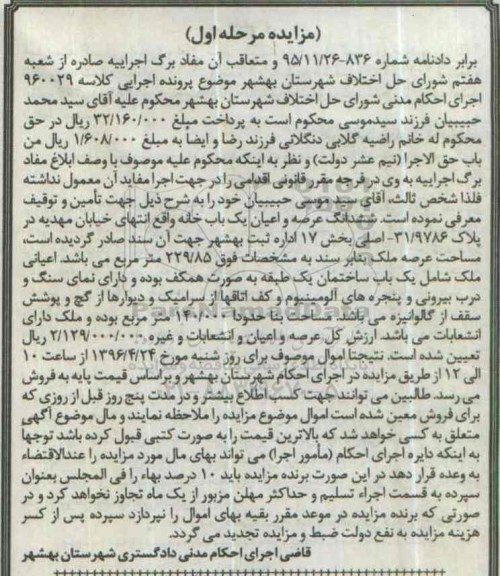 (مزایده مرحله اول)
برابر دادنامه شماره ۸۳۶-۹۵/۱۱/۲۶ و متعاقب آن مفاد برگ اجراییه صادره از شعبه
هفتم شورای حل اختلاف شهرستان بهشهر موضوع پرونده اجرایی کلاسه ۹۶۰۰۲۹
اجرای احکام مدنی شورای حل اختلاف شهرستان بهشهر محکوم علیه آقای سید محمد
حبیبیان فرزند سیدموسی محکوم است به پرداخت مبلغ ۳۲/۱۶۰/۰۰۰ ریال در حق
محکوم له خانم راضیه گلابی دنگلانی فرزند رضا و ایضاً به مبلغ ۱/۶۰۸/۰۰۰ ریال من
باب حق الاجرا (نیم عشر دولت) و نظر به اینکه محکوم علیه موصوف با وصف ابلاغ مفاد
برگ اجراییه به وی در فرجه مقرر قانونی اقدامی را در جهت اجرا مفاید آن معمول نداشته
فلذا شخص ثالث، آقای سید موسی حبیبیان خود را به شرح ذیل جهت تأمین و توقیف
معرفی نموده است. ششدانگ عرصه و اعیان یک باب خانه واقع انتهای خیابان مهدیه در
پلاک ۳۱/۹۷۸۶- اصلی بخش ۱۷ اداره ثبت بهشهر جهت آن سند صادر گردیده است،
مساحت عرصه ملک بنابر سند به مشخصات فوق ۲۲۹/۸۵ متر مربع می باشد. اعیانی
ملک شامل یک باب ساختمان یک طبقه به صورت همکف بوده و دارای نمای سنگ و
درب بیرونی و پنجره های آلومینیوم و کف اتاقها از سرامیک و دیوارها از گچ و پوشش
سقف از گالوانیزه می باشد. مساحت بنا حدودا ۱۴۰/۰۰ متر مربع بوده و ملک دارای
انشعابات می باشد. ارزش کل عرصه و اعیان و انشعابات و غیره ۲/۱۲۹/۰۰۰/۰۰۰ ریال
تعیین شده است. نتیجتا اموال موصوف برای روز شنبه مورخ ۱۳۹۶/۴/۲۴ از ساعت ۱۰
الی ۱۲ از طریق مزایده در اجرای احکام شهرستان بهشهر و براساس قیمت پایه به فروش
می رسد. طالبین می توانند جهت کسب اطلاع بیشتر و در مدت پنج روز قبل از روزی که
برای فروش معین شده است اموال موضوع مزایده را ملاحظه نمایند و مال موضوع آگهی
متعلق به کسی خواهد شد که بالاترین قیمت را به صورت کتبی قبول کرده باشد توجها
به اینکه دایره اجرای احکام (مأمور اجرا) می تواند بهای مال مورد مزایده را عندالاقتضاء
به وعده قرار دهد در این صورت برنده مزایده باید ۱۰ درصد بهاء را فی المجلس بعنوان
سپرده به قسمت اجراء تسلیم و حداکثر مهلن مزبور از یک ماه تجاوز نخواهد کرد و در
صورتی که برنده مزایده در موعد مقرر بقیه بهای اموال را نپردازد سپرده پس از کسر
هزینه مزایده به نفع دولت ضبط و مزایده تجدید می گردد.
قاضی اجرای احکام مدنی دادگستری شهرستان بهشهر